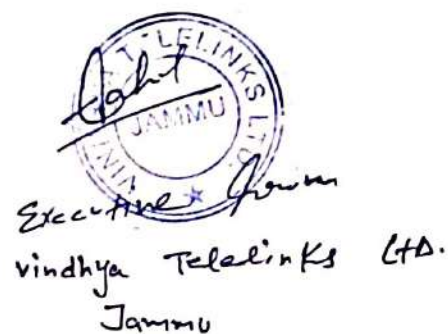 VINDHYA TELELINKS LTD.
JAMMU
Executive
vindhya Telelinks LtD.
Jammu